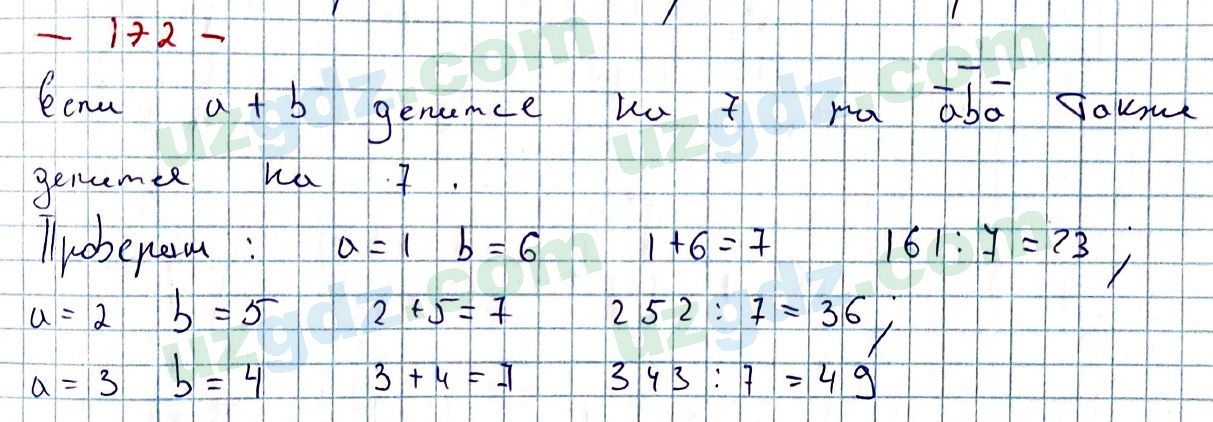 — 172 —
Если a + b делится на 7 то aba также
делится на 7 .
Проверяем : a = 1 b = 6 1 + 6 = 7 161 : 7 = 23 ;
a = 2 b = 5 2 + 5 = 7 252 : 7 = 36 ;
a = 3 b = 4 3 + 4 = 7 343 : 7 = 49
uzgdz.com uzgdz.com
uzgdz.com uzgdz.com